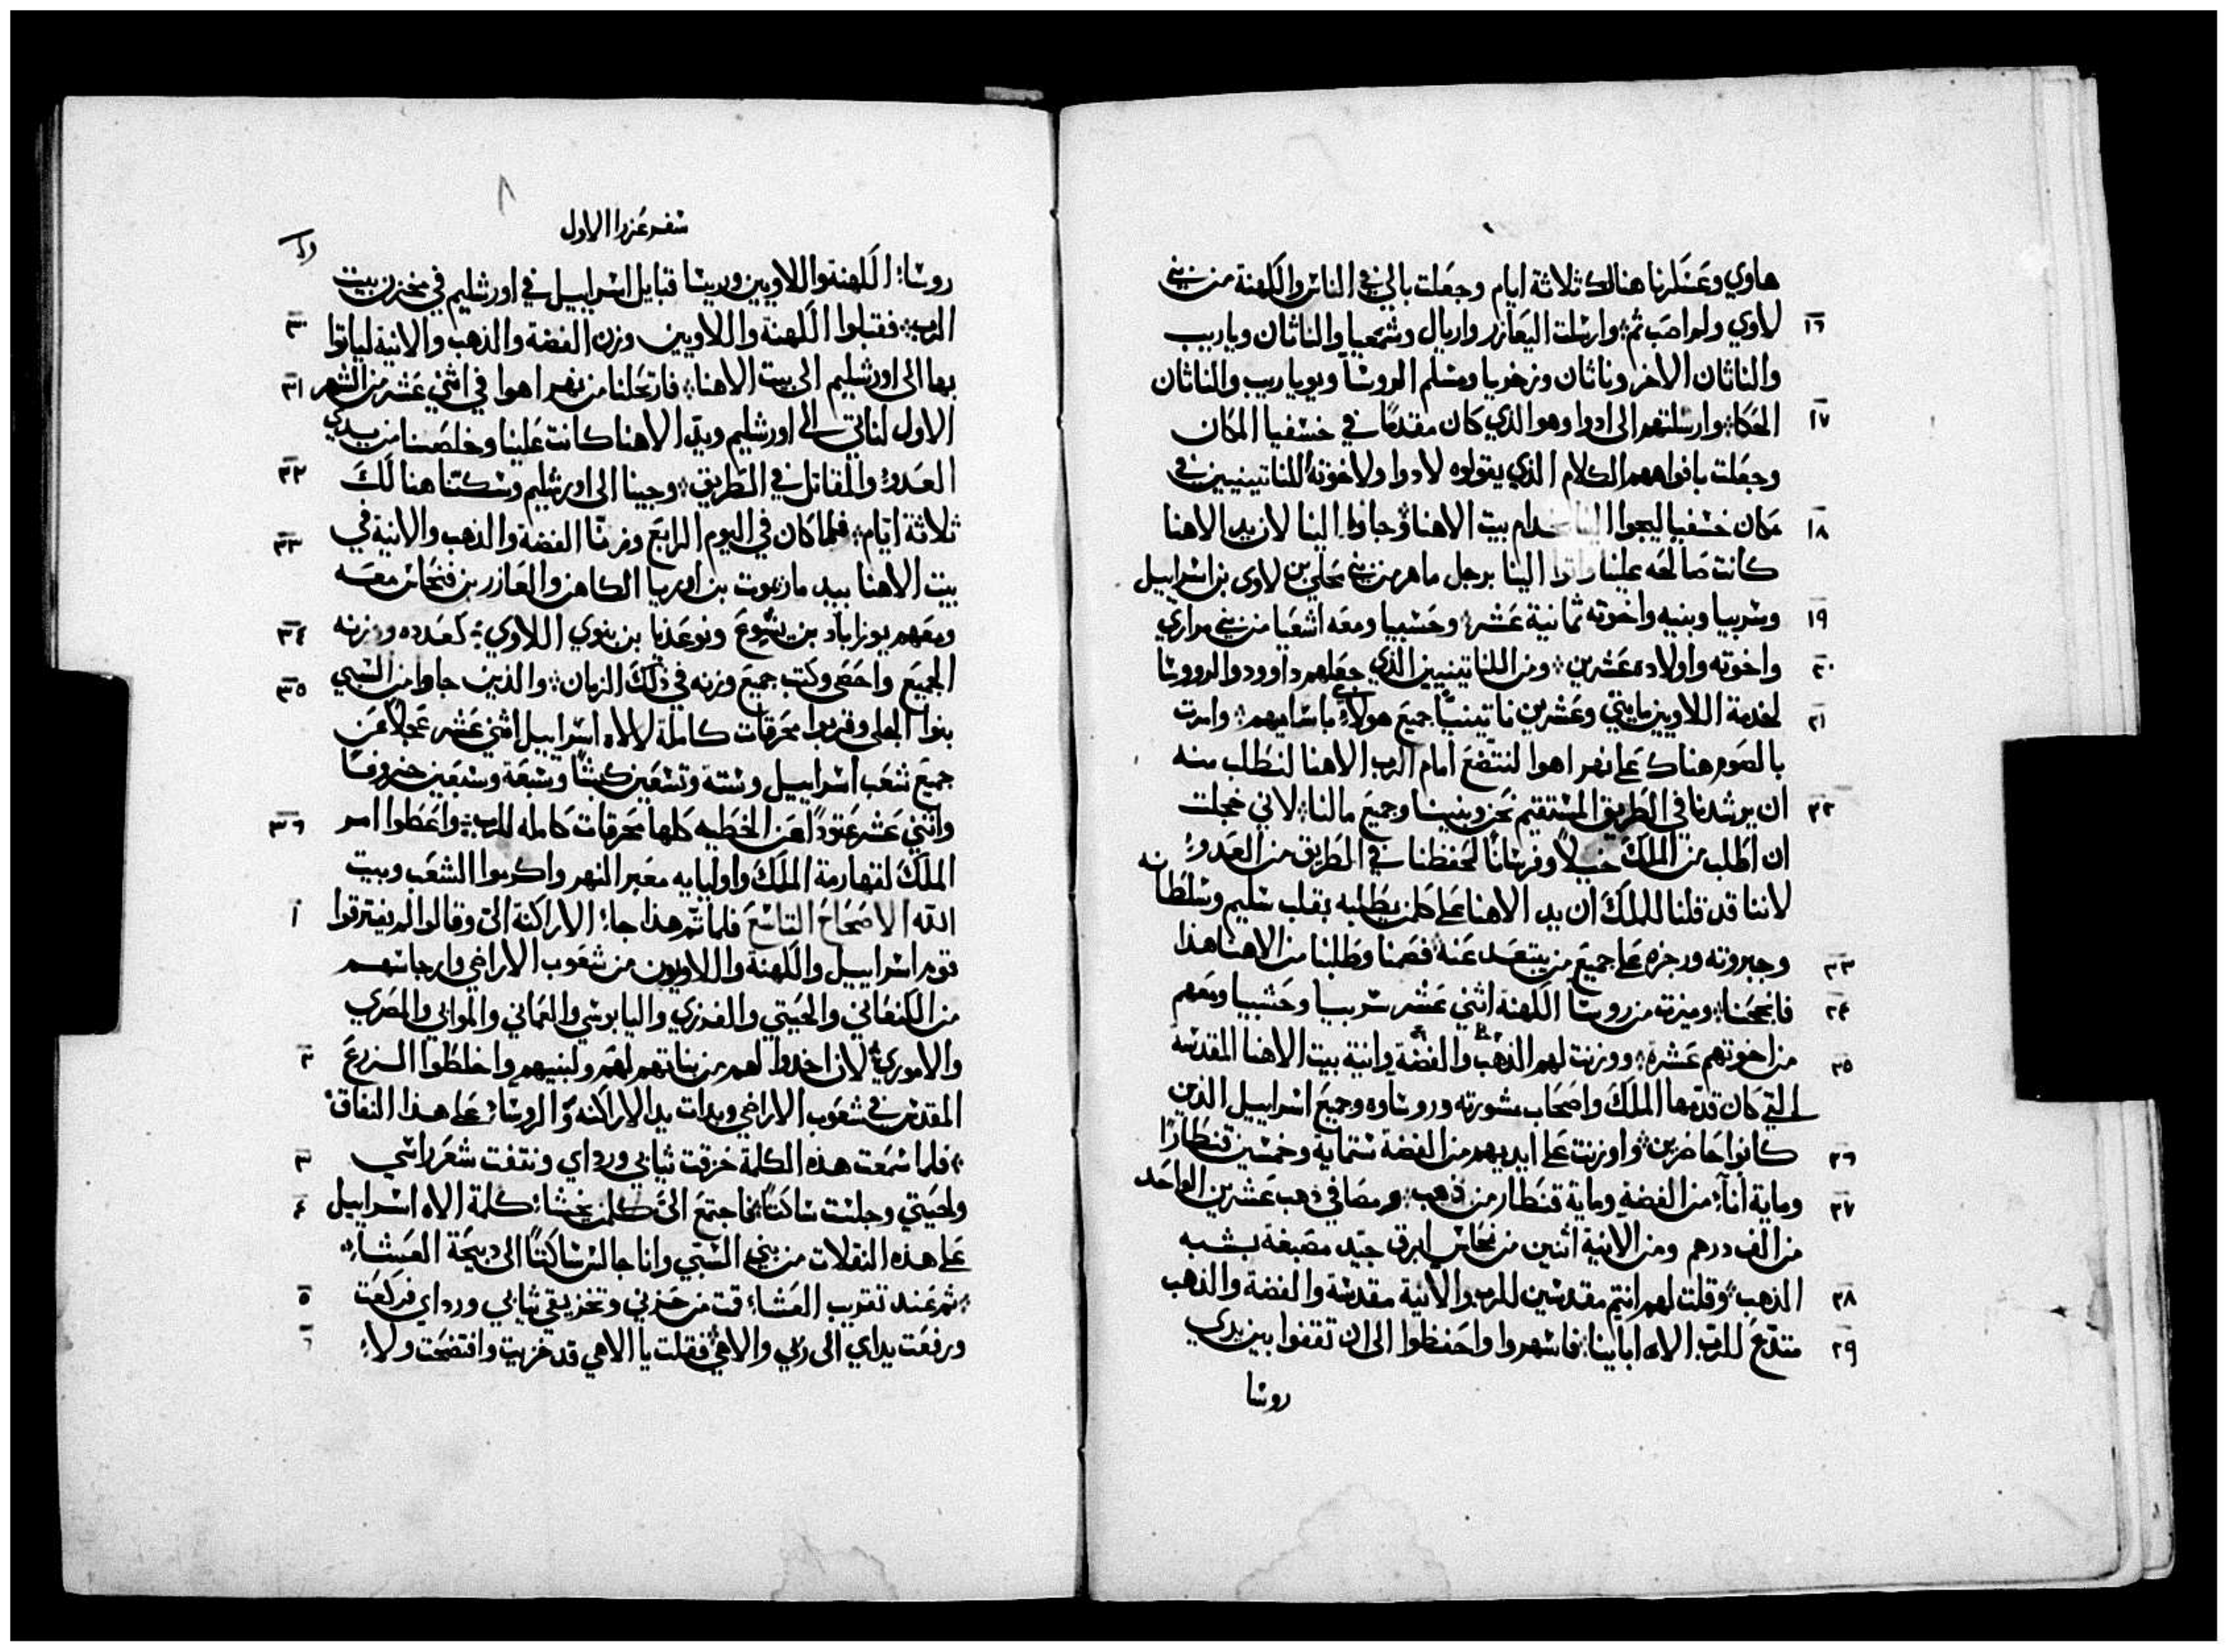 هاوي وعسكرنا هنالك ثلاثة ايام وجعلت بالي في الناس والكهنة من بني
١٦ لاوي ولم اصب ثم؛ وارسلت اليعازر واريال وشمعيا والناثان وياريب
والناثان الاخر وناثان وزخريا ومسلم الروسا ويوياريب والناثان
١٧ الحكا؛ وارسلتهم الى ادوا وهو الذي كان مقدمًا في خسفيا المكان
وجعلت بافواههم الكلام الذي يقولوه لادوا ولاخوته للناتينيين في
١٨ مكان خسفيا ليجوا الينا خدام بيت الاهنا؛ وجاوا الينا لان يد الاهنا
كانت صالحه علينا واتوا الينا برجل ماهر من بني محلي بن لاوى بن اسراييل
١٩ وسربيا وبنيه واخوته ثمانية عشر؛ وحسبيا ومعه اشعيا من بني مراري
٢٠ واخوته واولاده عشرين؛ ومن الناتينيين الذي جعلهم داوود والرووسا
٢١ لخدمة اللاويين مايتي وعشرين ناتينيًا جميع هولاء باساميهم؛ وامرت
بالصوم هناك على نهر اهوا لنتضع امام الرب الاهنا لنطلب منه
٢٢ ان يرشدنا في الطريق المستقيم نحن وبنينا وجميع مالنا؛ لاني خجلت
ان اطلب من الملك خيلاً وفرسانًا لحفظنا في الطريق من العدو؛
لاننا قد قلنا للملك ان يد الاهنا على كلمن يطلبه بقلب سليم وسلطانه
٢٣ وجبروته ورجزه على جميع من يبتعد عنه؛ فصمنا وطلبنا من الاهنا هذا
٢٤ فانجحنا؛ وميزت من روسا الكهنة اثني عشر سربيا وحشبيا ومعهم
٢٥ من اخوتهم عشرة؛ ووزنت لهم الذهب والفضة وانية بيت الاهنا المقدسه
التي كان قدمها الملك واصحاب مشورته وروساوه وجميع اسراييل الذين
٢٦ كانوا حاضرين؛ واوزنت على ايديهم من الفضة ستماية وخمسين قنطارًا
٢٧ وماية اناء من الفضه وماية قنطار من ذهب؛ ومصافي ذهب عشرين الواحد
من الف درهم ومن الانية اثنين من نحاس ابرق جيد مصبغة بشبه
٢٨ الذهب؛ وقلت لهم انتم مقدسين للرب والانية مقدسة والفضة والذهب
٢٩ متدع للرب الاه اباينا؛ فاسهروا واحفظوا الى ان تقفوا بين يدي
روسا
٨
سفر عزرا الاول
روسا؛ الكهنة واللاويين وريسا قبايل اسراييل في اورشليم في مخزن بيت
٣٠ الرب؛ فقبلوا الكهنة واللاويين وزن الفضة والذهب والانية لياتوا
٣١ بها الى اورشليم الى بيت الاهنا؛ فارتحلنا من نهر اهوا في اثني عشر من الشهر
الاول لناتي الى اورشليم ويد الاهنا كانت علينا وخلصنا من يدي
٣٢ العدو والمقاتل في الطريق؛ وجينا الى اورشليم وسكنا هنالك
٣٣ ثلاثة ايام؛ فلما كان في اليوم الرابع وزنا الفضة والذهب والانية في
بيت الاهنا بيد مارعوت بن اوريا الكاهن والعازر بن فنحاس معه
٣٤ ومعهم يوزاباد بن يشوع ونوعديا بن بنوي اللاوي؛ كعدده ووزنه
٣٥ الجميع واحصى وكتب جميع وزنه في ذلك الزمان؛ والذين جاوا من السبي
بنوا الجلي وقربوا محرقات كاملة لالاه اسراييل اثني عشر عجلاً عن
جميع شعب اسراييل وستة وتسعين كبشًا وسبعة وسبعين خروفًا
٣٦ واثني عشر عتودًا عن الخطيه كلها محرقات كامله للرب؛ واعطوا امر
الملك لقهارمة الملك واوليايه معبر النهر واكرموا الشعب وبيت
١ الله الاصحاح التاسع فلما تم هذا جاء الاراكنة الي وقالوا لم يفترقوا
قوم اسراييل والكهنة واللاويون من شعوب الاراضي وارجاسهم
من الكنعاني والحيتي والفرزي واليابوسي والعماني والموابي والمصري
٢ والاموري؛ لان اخدوا لهم من بناتهم لهم ولبنيهم واخلطوا الزرع
المقدس في شعوب الاراضي وبدات يد الاراكنه والروسا؛ على هذا النفاق؛
٣ فلما سمعت هذه الكلمة خرقت ثيابي ورداي ونتفت شعر راسي
٤ ولحيتي وجلست ساكتًا؛ فاجتمع الي كلمن يخشا؛ كلمة الاه اسراييل
على هذه النقلات من بني السبي وانا جالس ساكتًا الى دبيحة العشاء؛
٥ ثم عند تقريب العشاء قمت من حزني وتخزيقي ثيابي ورداي فركعت
٦ ورفعت يداي الى ربي والاهي؛ فقلت يا الاهي قد خزيت وافتضحت ولاء